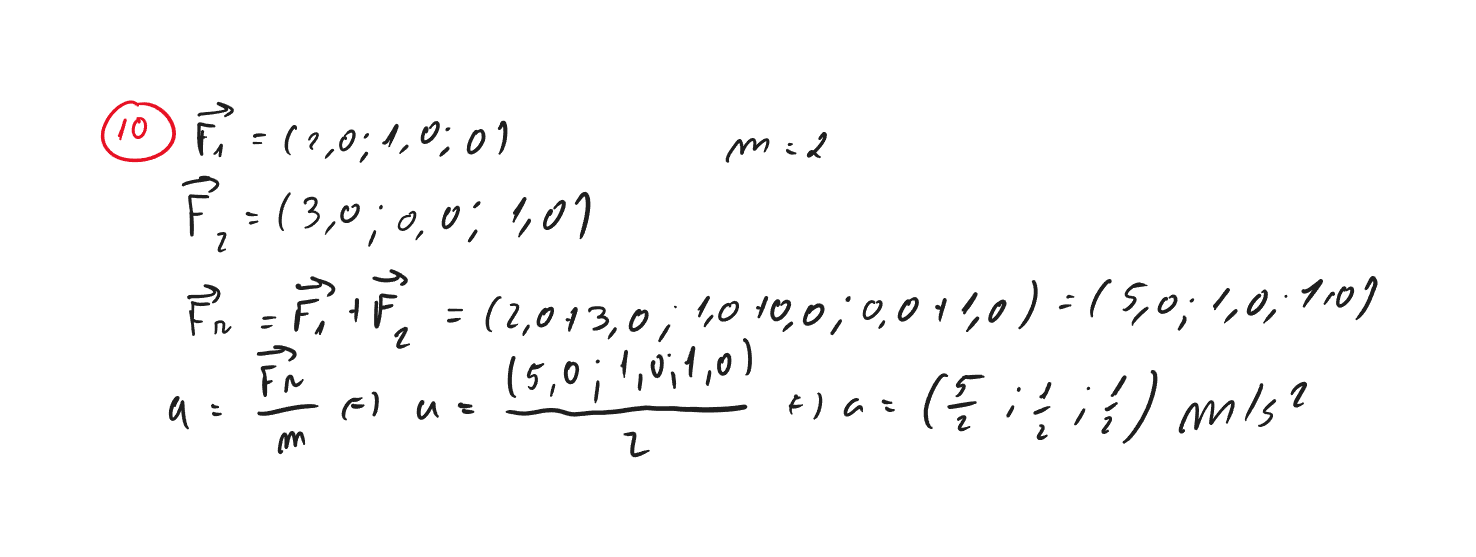 10 F₁⃗ = (2,0; 1,0; 0) m = 2
F₂⃗ = (3,0; 0,0; 1,0)
Fr⃗ = F₁⃗ + F₂⃗ = (2,0+3,0; 1,0+0,0; 0,0+1,0) = (5,0; 1,0; 1,0)
a = Fr⃗/m (=) a = (5,0; 1,0; 1,0)/2 (=) a = (5/2; 1/2; 1/2) m/s²